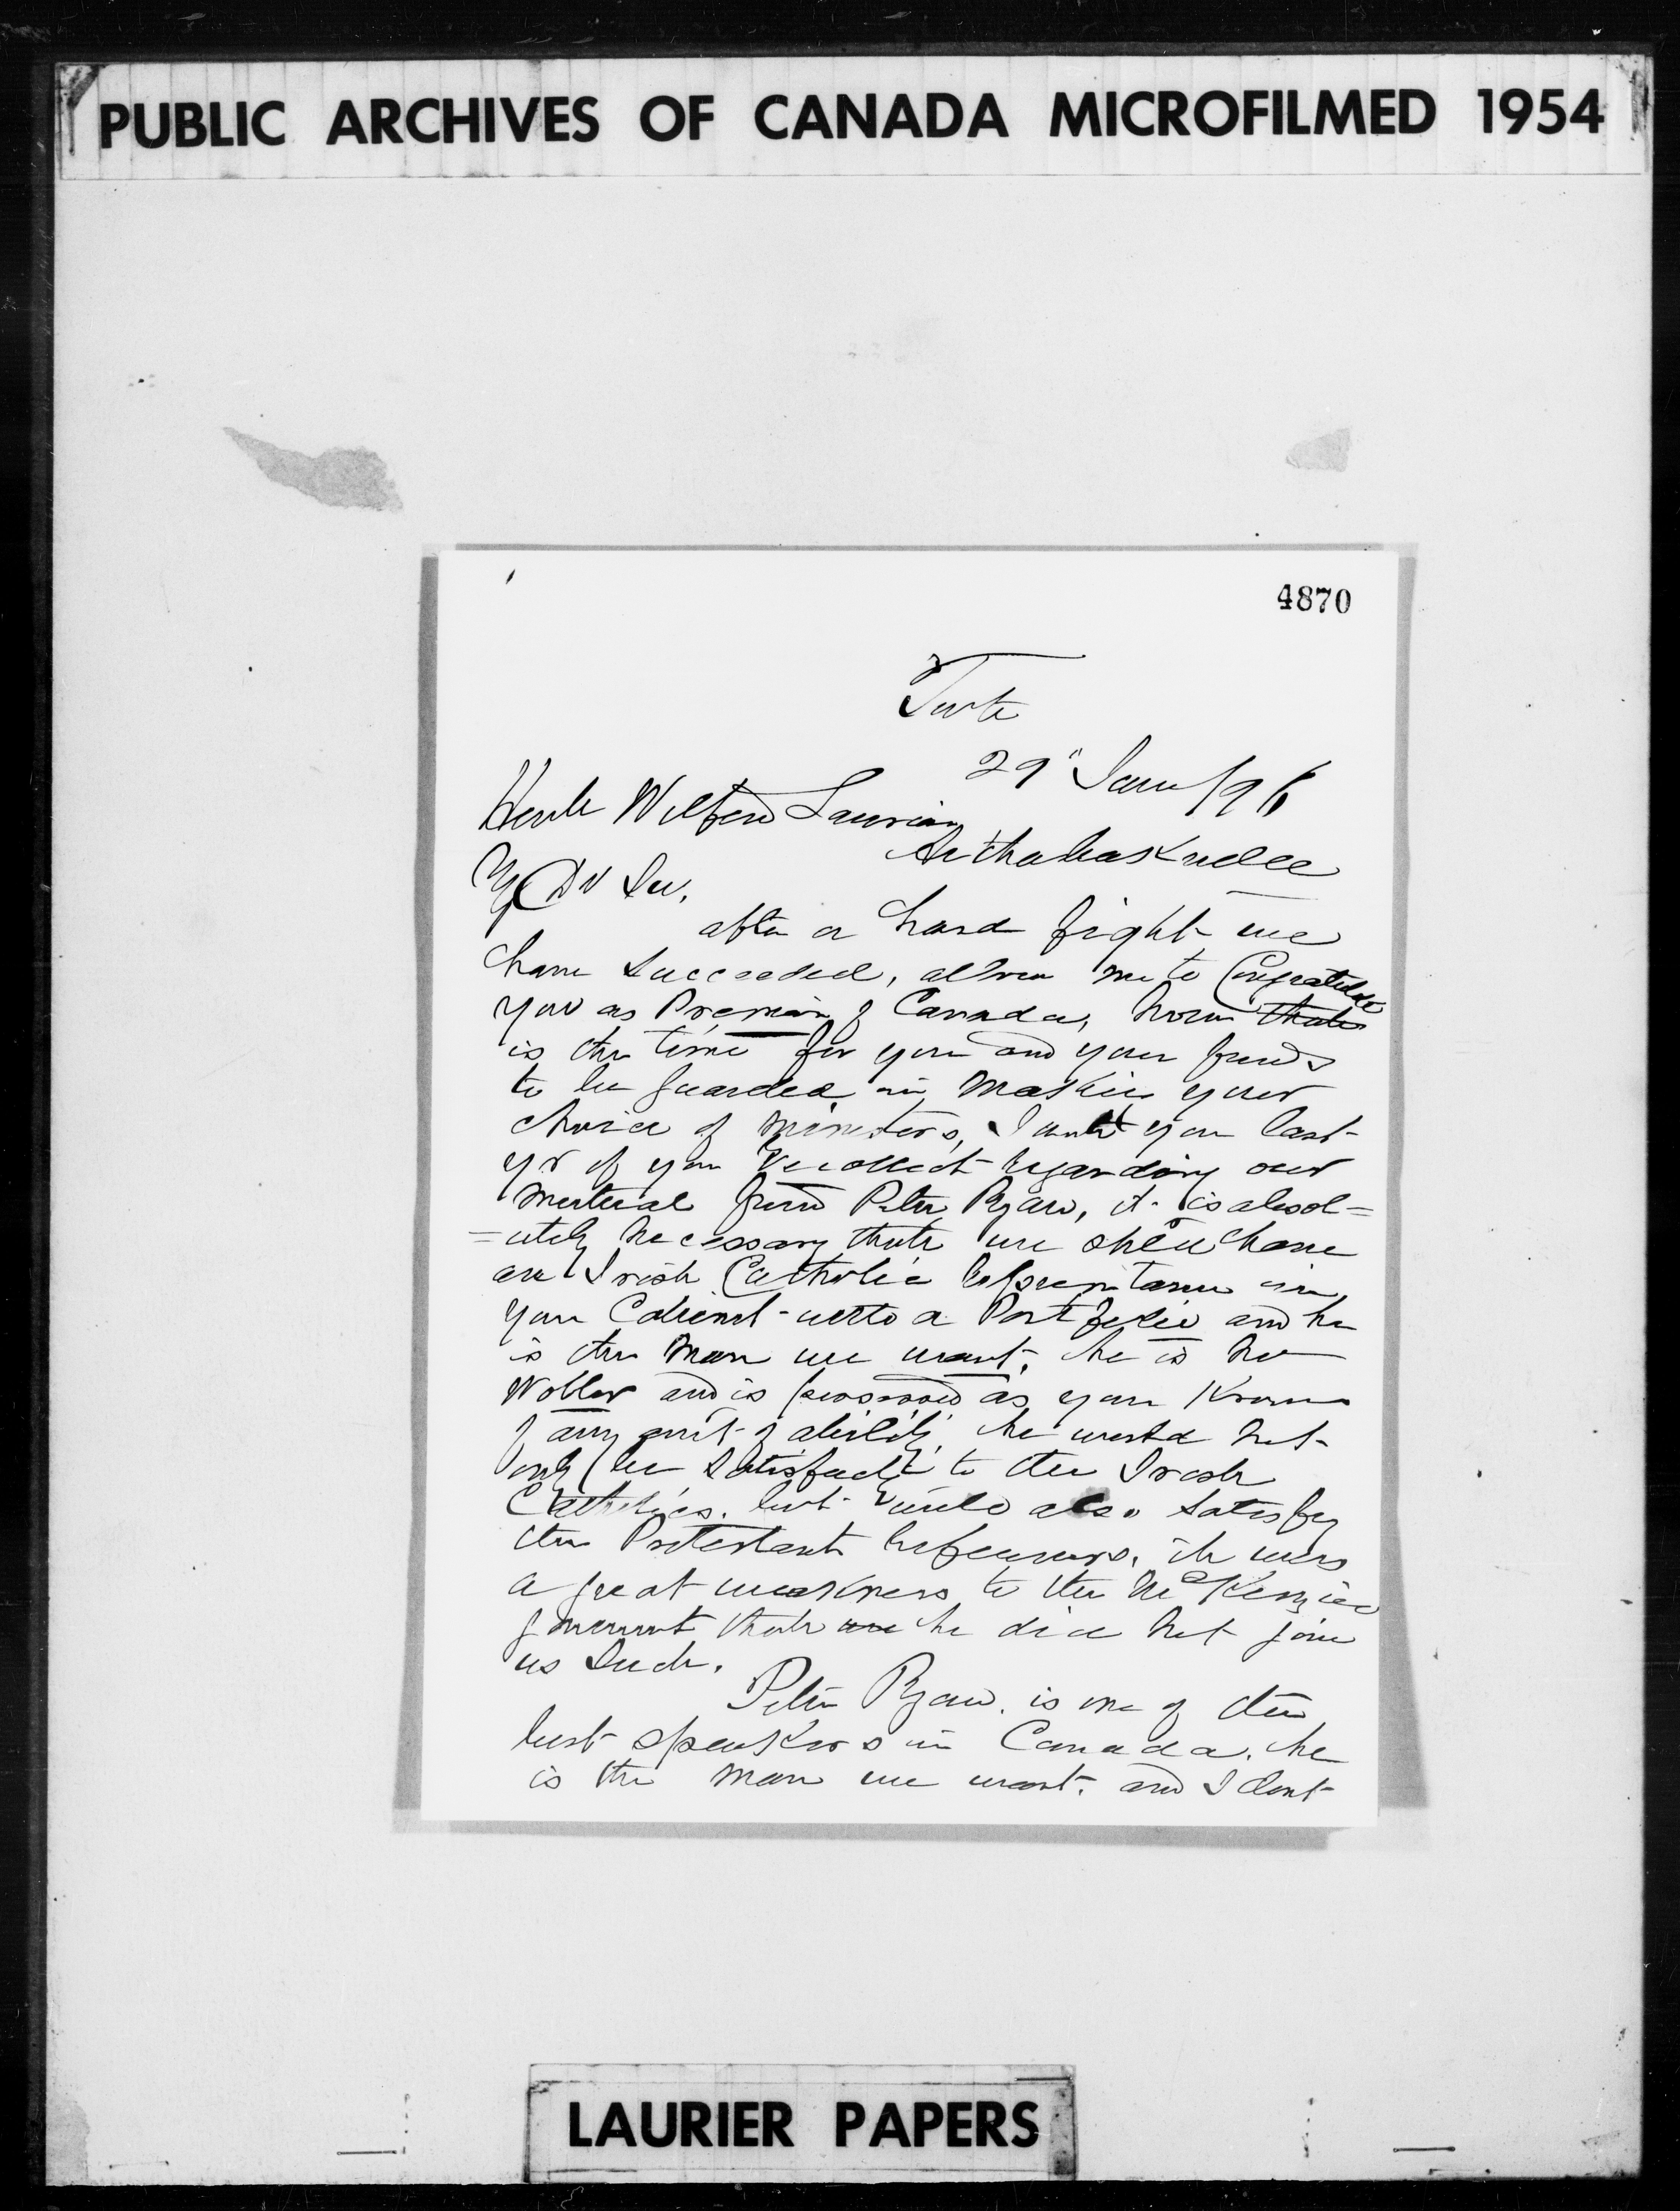 PUBLIC ARCHIVES OF CANADA MICROFILMED 1954
4870
29" June/96
Honble Wilfred Laurier
Arthabaskaville
My Dr Sir,
after a hard fight we
have succeeded, allow me to Congratulate
you as Premier of Canada, now that
is the time for you and your friends
to be guarded in making your
choice of ministers, I wrote you last
yr if you recollect regarding our
mutual friend Peter Ryan, it is absol=
=utely necessary that we should have
an Irish Catholic representative in
your Cabinet with a Portfolio and he
is the man we want, he is no
and is possessed as you know
of any amt of ability, he would not
only be satisfactory to the Irish
Catholics, but would also satisfy
the Protestant Reformers, it was
a great weakness to the McKenzie
government that we he did not join
us such.
Peter Ryan is one of the
best speakers in Canada, he
is the man we want, and I dont
LAURIER PAPERS